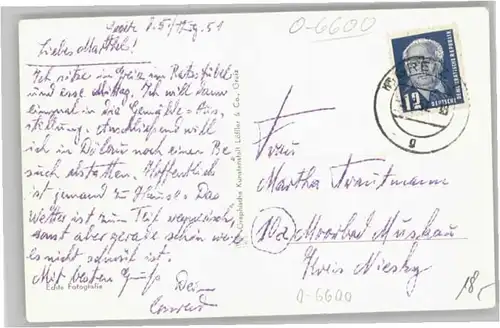 0-6600
Greiz
51
Liebes Marthel!
Ich sitze in Greiz im Ratsstübel
und esse Mittag. Ich will dann
einmal in die Gemälde-Aus-
stellung. Anschließend will
ich in Dölau noch einen Be-
such abstatten. Hoffentlich
ist jemand zu Hause. Das
Wetter ist zum Teil
sonst aber gerade schön weil
es nicht schwül ist.
Mit besten Gruß Dein
Conrad
Echte Fotografie
Graphische Kunstanstalt Löffler & Co., Greiz
12
DEUTSCHE
GREIZ
g
Frau
Martha Trautmann
(10a) Moorbad Muskau
Kreis Niesky
0-6600
18,-